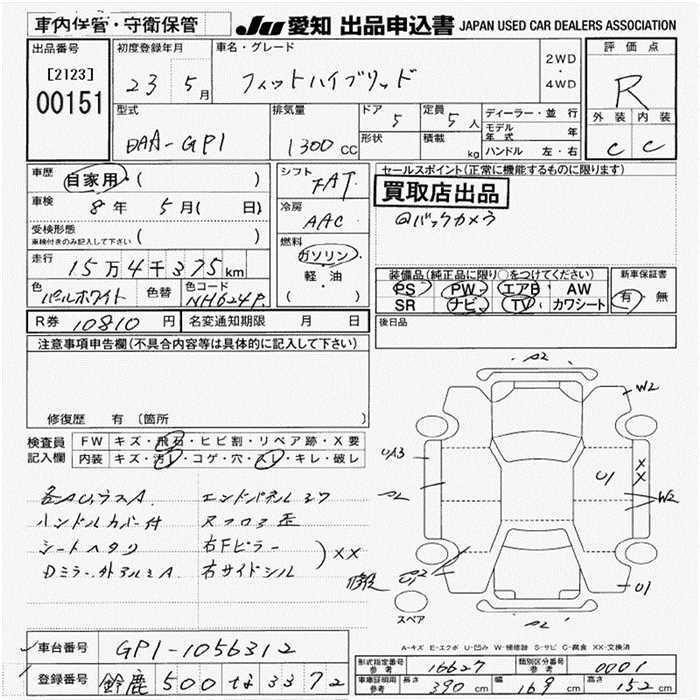 車内保管・守衛保管
JU 愛知 出品申込書 JAPAN USED CAR DEALERS ASSOCIATION
出品番号 初度登録年月 車名・グレード 2WD ・ 4WD 評価点
[2123] 00151 23 5月 フィットハイブリッド R
型式 排気量 ドア 定員 ディーラー・並行 外装 内装
DAA-GP1 1300cc 5 5人 モデル年式 年 C C
形状 積載 kg ハンドル 左・右
車歴 自家用・( ) シフト FAT セールスポイント(正常に機能するものに限ります)
車検 8年 5月( 日) 冷房 AAC 買取店出品
受検形態 車検付きのみ記入して下さい ( ) @バックカメラ
走行 15万4千375km 燃料 ガソリン・軽・油 ( )
装備品(純正品に限り○をつけてください) 新車保証書
PS PW エアB AW 有・無
SR ナビ TV カワシート
色 パールホワイト 色替 色コード NH624P
R券 10810円 名変通知期限 月 日 後日品
注意事項申告欄(不具合内容等は具体的に記入して下さい)
修復歴 有 〔箇所 〕
検査員記入欄 FW キズ・飛石・ヒビ割・リペア跡・X要
内装 キズ・汚レ・コゲ・穴・スレ・キレ・破レ
エンドパネルヨワ
ハンドルカバー付
シートヘタリ 右Fピラー
Dミラー、外アルミA 右サイドシル
XX
A2
W2
UA3
A2
U1
X
X
W2
U1
A2
U1
A2
スペア
A-キズ E-エクボ U-凹み W-補修跡 S-サビ C-腐食 XX-交換済
車台番号 GP1-1056312
登録番号 鈴鹿 500 な 3372
形式指定番号 参考 16627 類別区分番号 参考 0001
車庫証明用 参考 長さ 390cm 幅 169cm 高さ 152cm